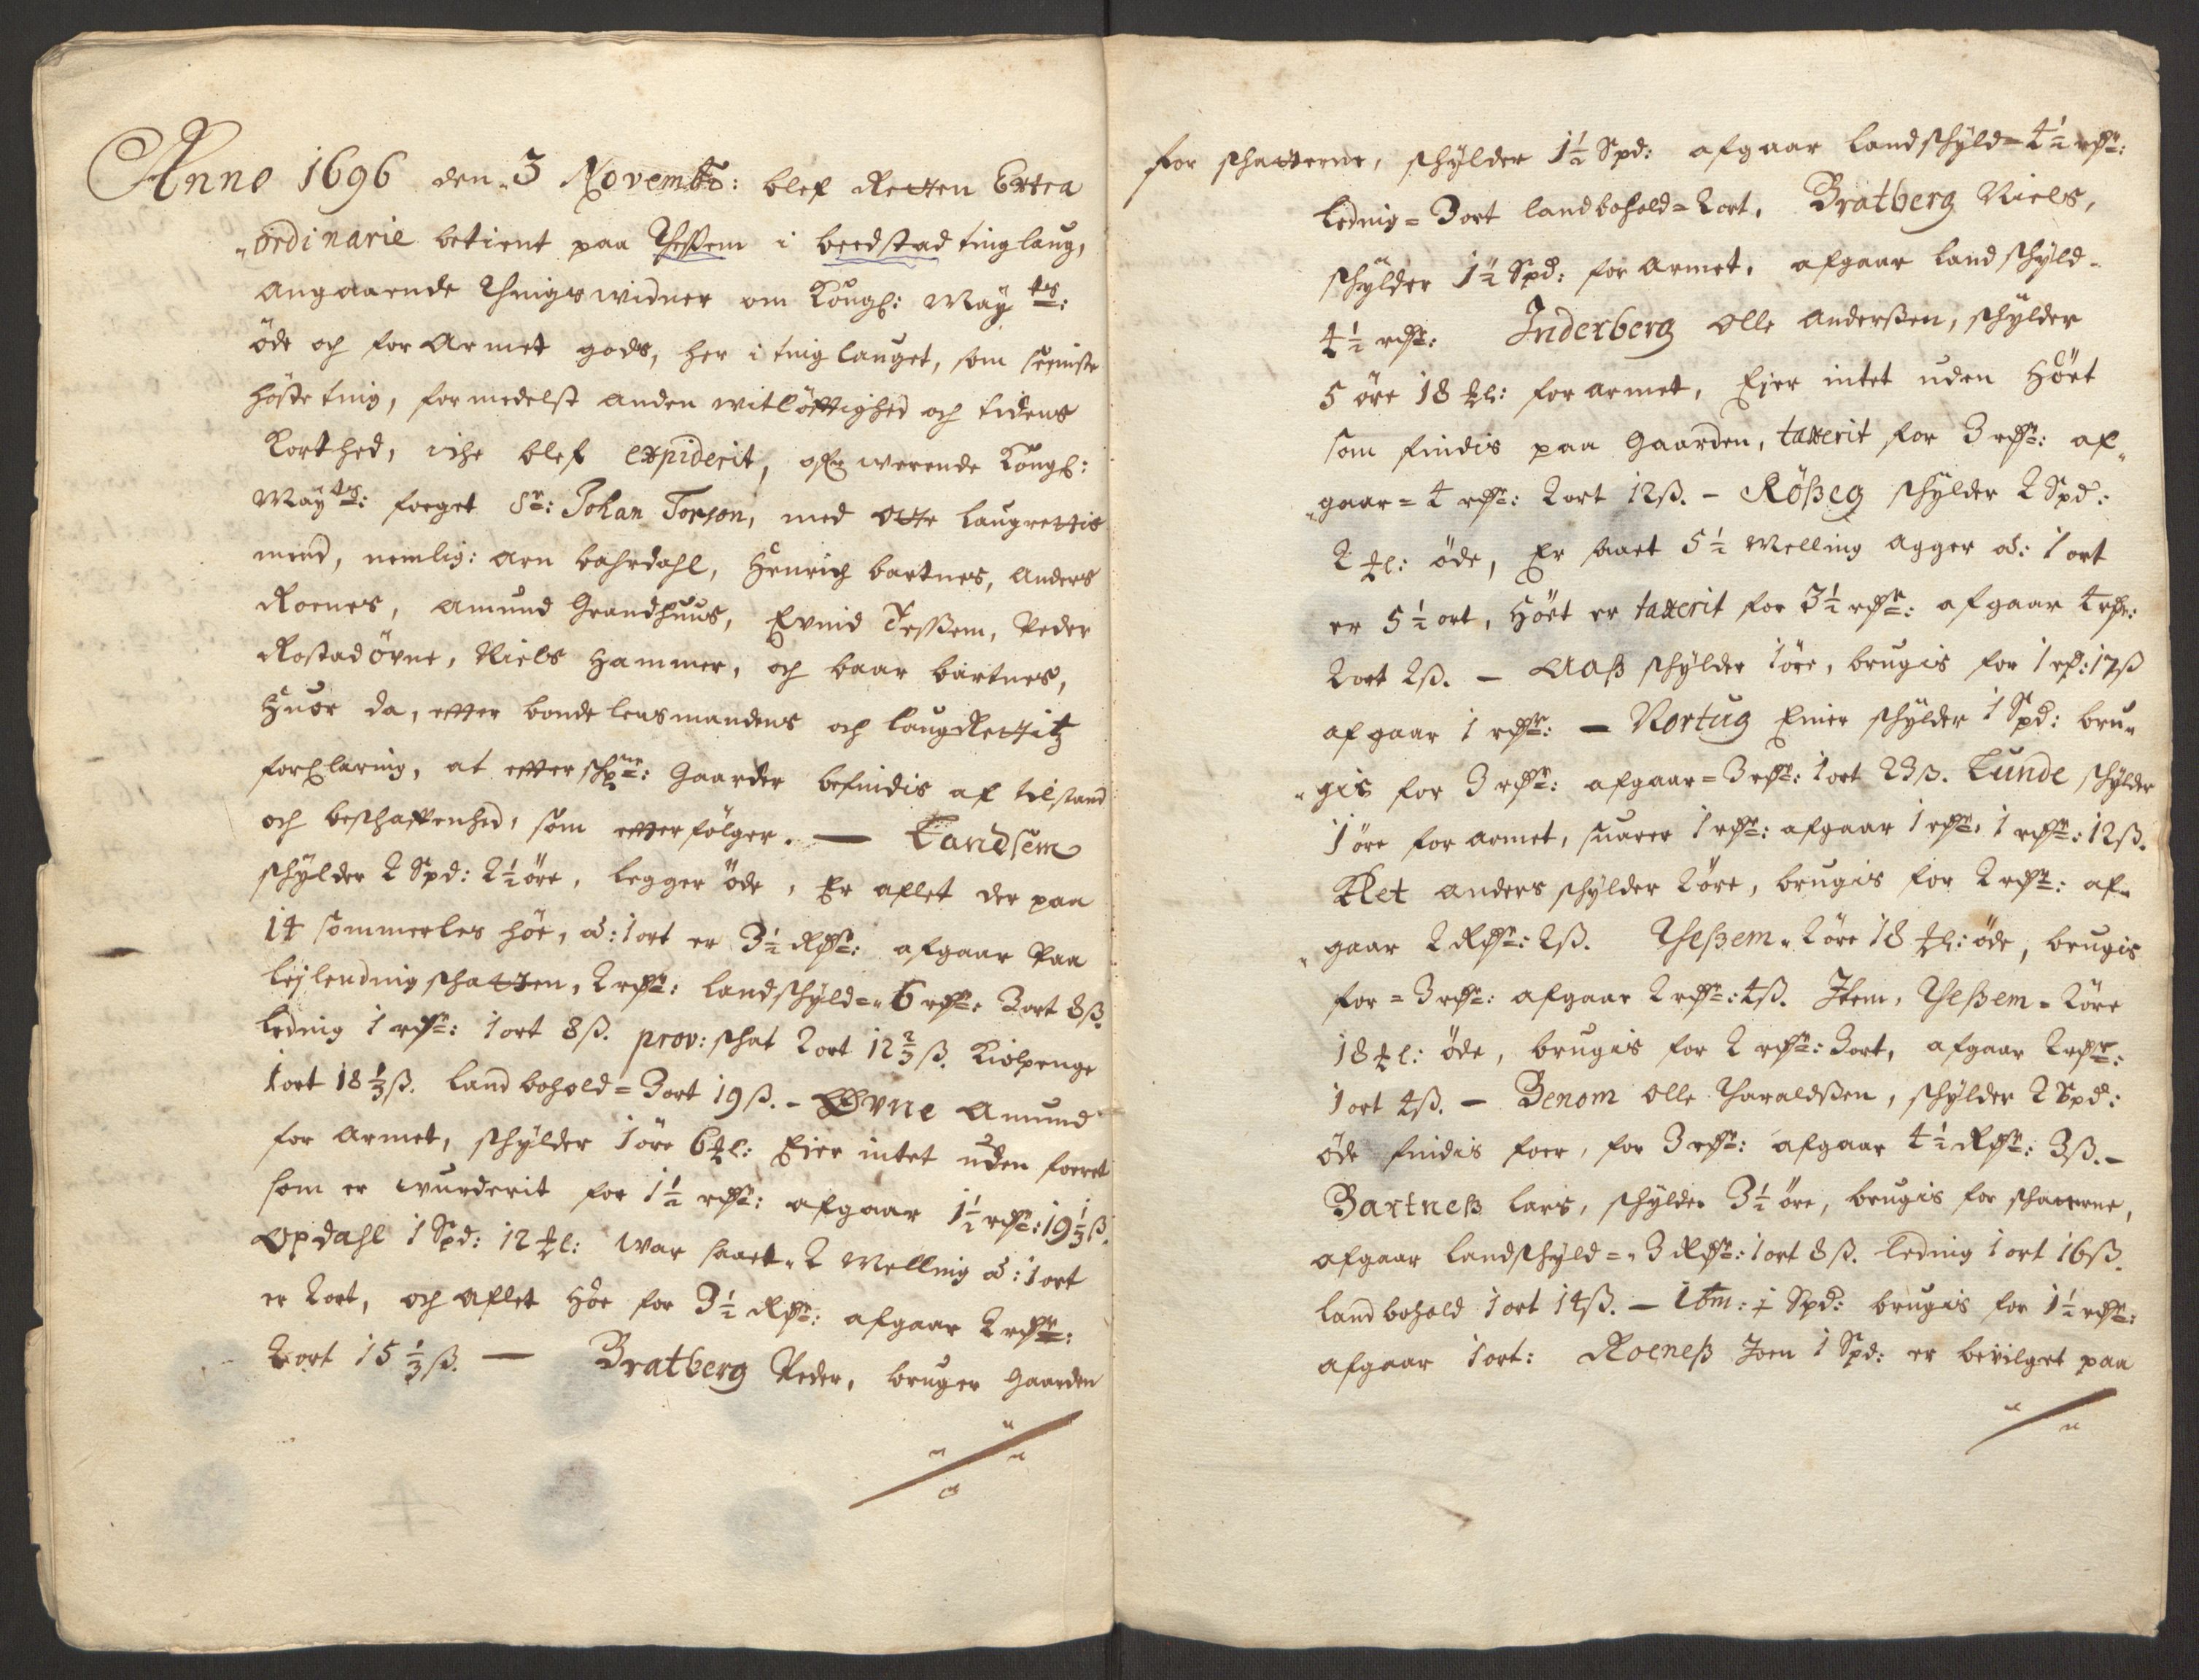 Anno 1696 den 3 Novembr: blef Retten Extra
ordinarie betient paa Thessem i beedstad tinglaug,
angaarende Thingswidner om Kongl: May ts:
öde och forarmet gods, her i tinglauget, som seeniste
höste ting, formedelst anden witlöfftighed och tidens
Korthed, iche blef expiderit, ofr werende Kongl:
Mayts: foeget Sr: Johan Torson, med otte laugrettis
mend, nemlig: Arn bahrdahl, Henrich bartnes, Anders
Roenes, Amund Grandhuus, Evind Tessem, Peder
Rostadövne, Niels Hammer, och baar bartnes,
Huor da, effter bondelensmandens och laugRettitz
forklaring, at effterschrne: Gaarder befindis af tilstand
och beschaffenhed, som effterfölger. — Landsem
schylder 2 Spd: 2½ öre, legger öde, Er aflet der paa
14 sommerles höe, a: 1 ort er 3½ Rdr: afgaar paa
lejlending schatten, 2 rdr: landschyld = 6 rdr: 3 ort 8ß.
leding 1 rdr: 1 ort 8ß. prov: schat 2 ort 12⅔ß. Kiolpenge
1 ort 18⅓ß. landbohold = 3 ort 19ß. - Øvne Amund
forarmet, schylder 1 öre 6 ℔l: Ejer intet uden foeret
som er wurderit for 1½ rdr: afgaar 1½ rdr: 19⅓ß.
Opdahl 1 Spd: 12 ℔l: war saaet 2 Melling a: 1 ort
er 2 ort, och aflet höe for 3½ Rdr: afgaar 2 rdr:
2 ort 15⅓ß. — Bratberg Peder, bruger Gaarden
for schatterne, schylder 1½ Spd: afgaar landschyld = 4½ rdr:
leding = 3 ort landbohold = 2 ort, Bratberg Niels,
schylder 1½ Spd: forarmet, afgaar landschyld =
4½ rdr: Inderberg Olle Anderßen, schylder
5 öre 18 ℔l: forarmet, Ejer intet uden Höet
som findis paa Gaarden, taxerit for 3 rdr: af
gaar = 4 rdr: 2 ort 12ß. - Rößeg schylder 2 Spd:
2 ℔l: öde, Er saaet 5½ Melling agger a: 1 ort
er 5½ ort, Höet er taxerit for 3½ rdr: afgaar 4 rdr:
2 ort 2ß. - Aaß schylder 1 öre, brugis for 1 rd: 17ß
afgaar 1 rdr: - Nortug Einer schylder 1 Spd: bru
gis for 3 rdr: afgaar = 3 rdr: 1 ort 23ß. Lunde schylder
1 öre forarmet, suarer 1 rdr: afgaar 1 rdr: 1 rdr: 12ß.
Klet Anders schylder 2 öre, brugis for 2 rdr: af
gaar 2 Rdr: 2ß. Theßem 2 öre 18 ℔l: öde, brugis
for = 3 rdr: afgaar 2 rdr: 4ß. Item, Theßem = 2 öre
18 ℔l: öde, brugis for 2 rdr: 3 ort, afgaar 2 rdr:
1 ort 4ß. - Benom Olle Tharaldßen, schylder 2 Spd:
öde findis foer, for 3 rdr: afgaar 4½ Rdr: 3ß. -
Bartneß lars, schylder 3½ öre, brugis for schatterne,
afgaar landschyld = 3 Rdr: 1 ort 8ß. leding 1 ort 16ß.
landbohold 1 ort 14ß. - Itm: ½ Spd: brugis for 1½ rdr:
afgaar 1 ort: Roeneß Joen 1 Spd: er bevilget paa